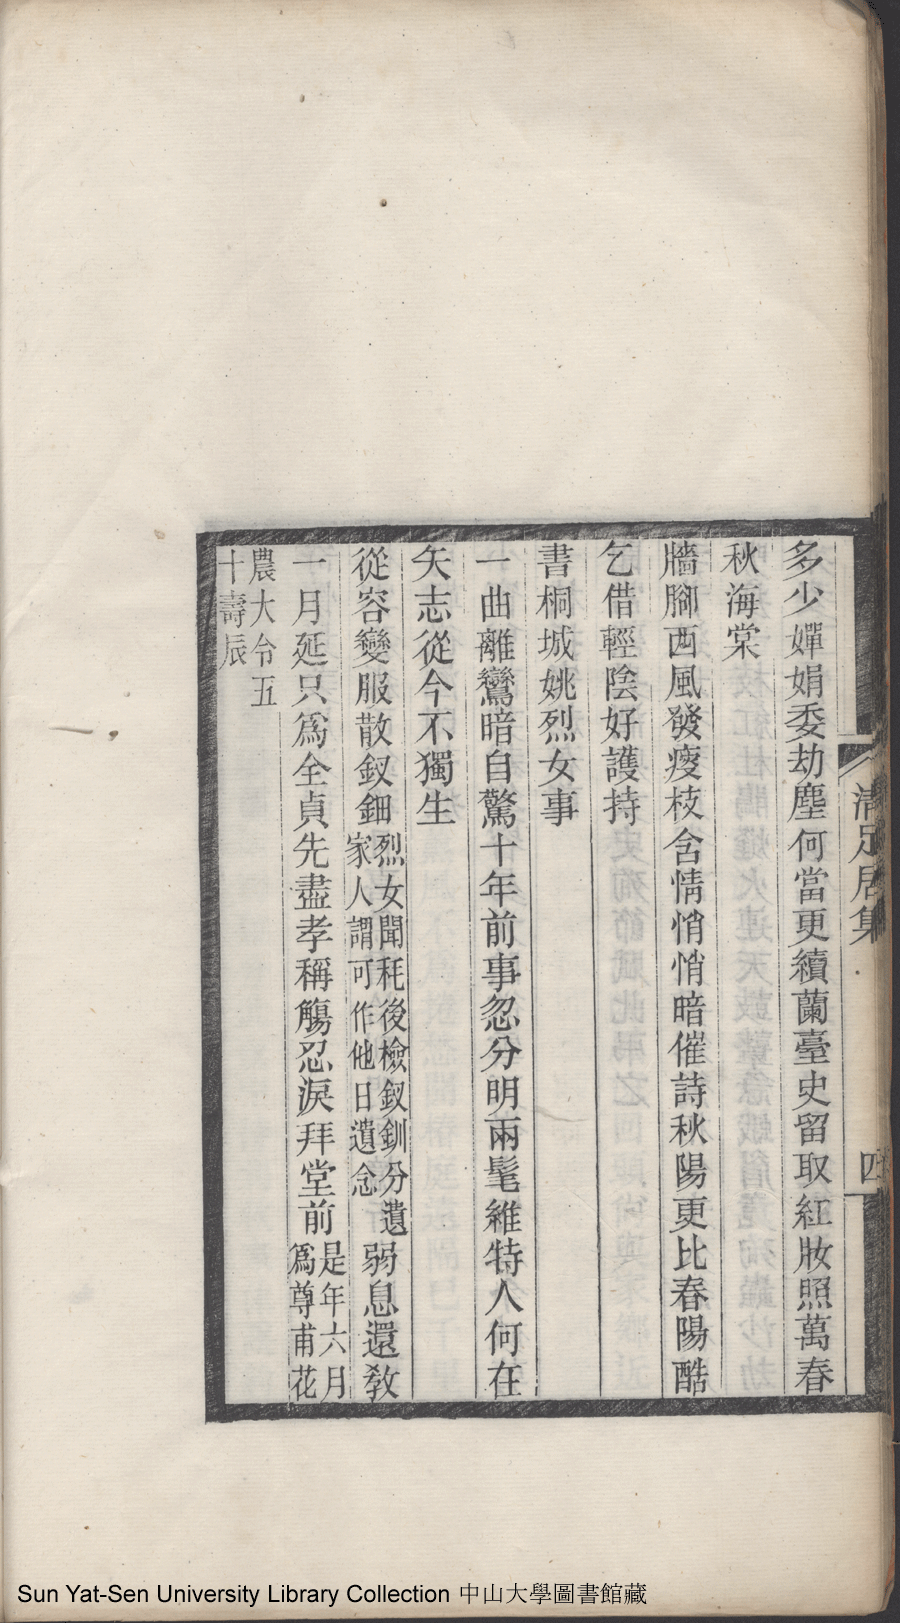 清足居集
四
多少嬋娟委劫塵何當更續蘭臺史留取紅妝照萬春
秋海棠
牆腳西風發瘦枝含情悄悄暗催詩秋陽更比春陽酷
乞借輕陰好護持
書桐城姚烈女事
一曲離鸞暗自驚十年前事忽分明兩髦維特人何在
矢志從今不獨生
從容變服散釵鈿烈女聞秏後檢釵釧分遺家人謂可作他日遺念弱息還敎
一月延只爲全貞先盡孝稱觴忍淚拜堂前是年六月爲尊甫花
農大令五
十壽辰
Sun Yat-Sen University Library Collection 中山大學圖書館藏